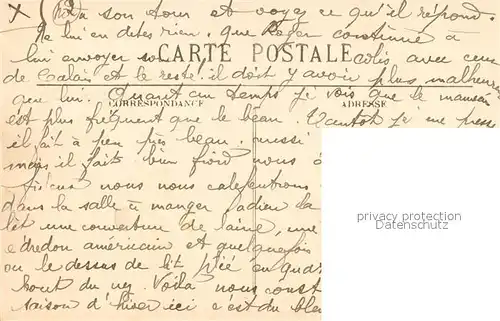 à son tour et voyez ce qu'il répond.
Ne lui en dites rien, que Roger continue à
lui envoyer son colis avec ceux
CARTE POSTALE
de Calais et le reste! il doit y avoir plus malheureux
que lui. Quant au temps je vois que le mauvais
CORRESPONDANCE ADRESSE
est plus fréquent que le beau.
il fait à peu près beau, aussi
mais il fait bien froid nous a
nous nous calfeutrons
dans la salle à manger, adieu la
lit une couverture de laine, une
édredon américain et quelquefois
ou le dessus de lit plié en quat
bout du nez. Voilà nous
saison d'hiver ici c'est du
privacy protection
Datenschutz